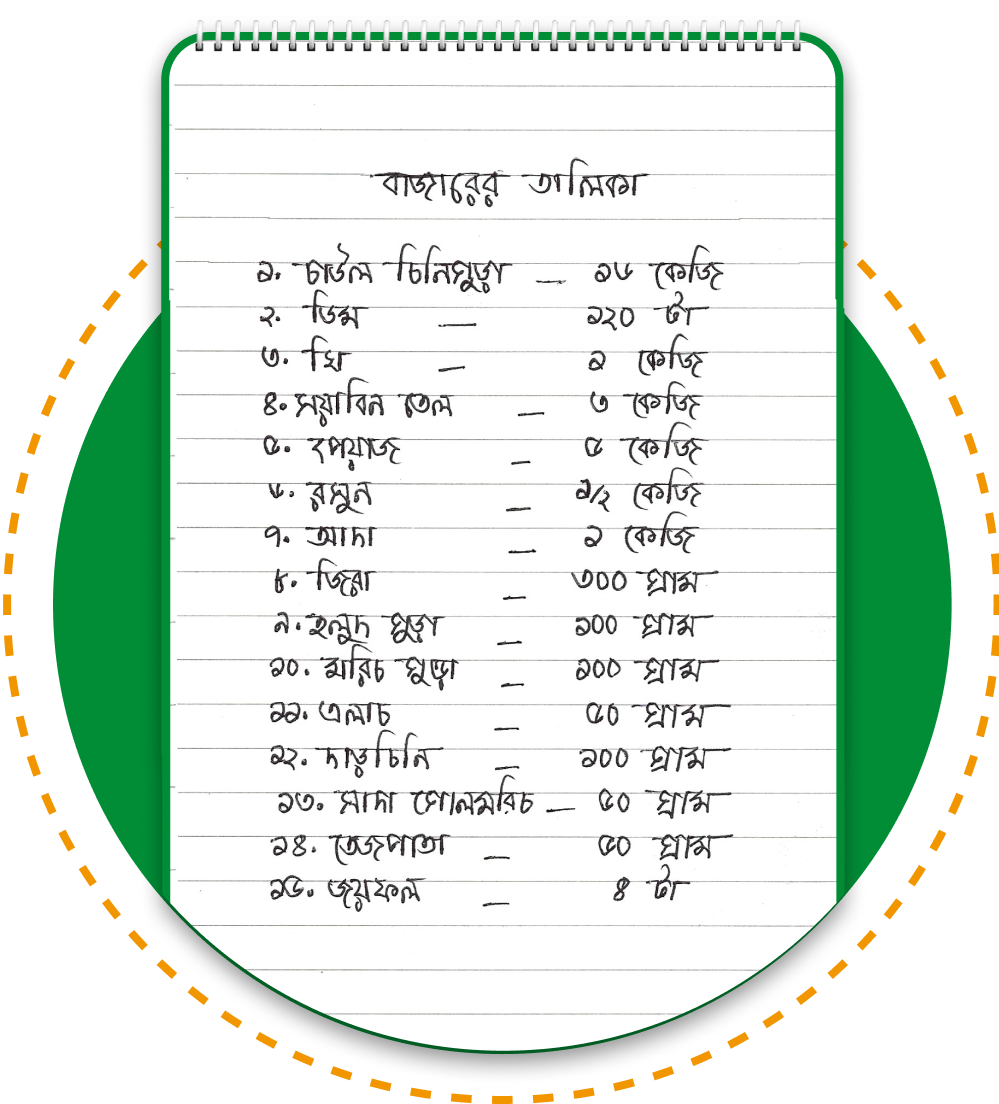 বাজারের তালিকা
১. চাউল চিনিগুড়া — ১৬ কেজি
২. ডিম — ১২০ টা
৩. ঘি — ১ কেজি
৪. সয়াবিন তেল — ৩ কেজি
৫. পেয়াজ — ৫ কেজি
৬. রসুন — ১/২ কেজি
৭. আদা — ১ কেজি
৮. জিরা — ৩০০ গ্রাম
৯. হলুদ গুড়া — ১০০ গ্রাম
১০. মরিচ গুড়া — ১০০ গ্রাম
১১. এলাচ — ৫০ গ্রাম
১২. দারুচিনি — ১০০ গ্রাম
১৩. সাদা গোলমরিচ — ৫০ গ্রাম
১৪. তেজপাতা — ৫০ গ্রাম
১৫. জয়ফল — ৪ টা